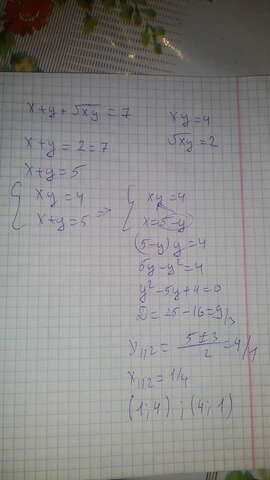 x+y+√xy = 7
xy=4
x+y=2=7
√xy=2
x+y=5
{ xy=4
x+y=5 => { xy=4
x=5-y
(5-y)y=4
5y-y²=4
y²-5y+4=0
D=25-16=9/3
y₁,₂= 5±3/2 =4/1
x₁,₂=1/4
(1;4) ; (4;1)